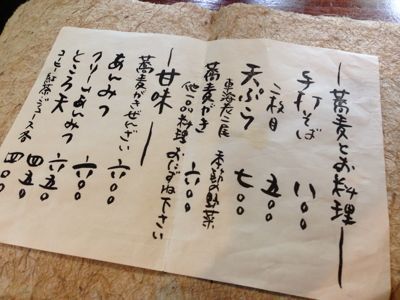 蕎麦とお料理
手打そば 八〇〇
二枚目 五〇〇
天ぷら 七〇〇
季節の野菜
蕎麦がき 六〇〇
他一品料理おたずね下さい
甘味
蕎麦がきぜんざい
あんみつ 六〇〇
クリームあんみつ 六〇〇
ところ天 四五〇
コーヒー紅茶ジュース各 四〇〇